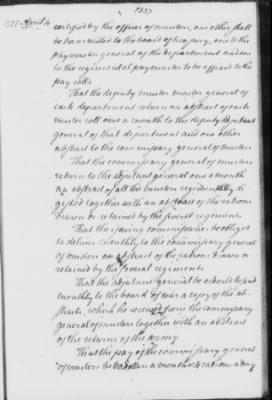 1337
1777 April 4
certified by the officer of musters, one other shall
be transmitted to the board of treasury, one to the
paymaster general of the department and one
to the regimental paymaster to be affixed to the
pay roll.
That the deputy muster master general of
each department return an abstract of each
muster roll once a month to the deputy adjutant
general of that department and one other
abstract to the commissary general of musters
That the commissary general of musters
return to the adjutant general once a month
an abstract of all the musters regimentally di
gested together with an abstract of the rations
drawn or retained by the several regiments.
That the issuing commissaries be obliged
to deliver monthly to the commissary general
of musters an abstract of the rations drawn or
retained by the several regiments
That the adjutant general be ordered to send
monthly to the board of war a copy of the ab-
stracts, which he receives from the commissary
general of musters together with an abstract
of the returns of the army
That the pay of the commissary general
of musters be dollars a month & rations a day